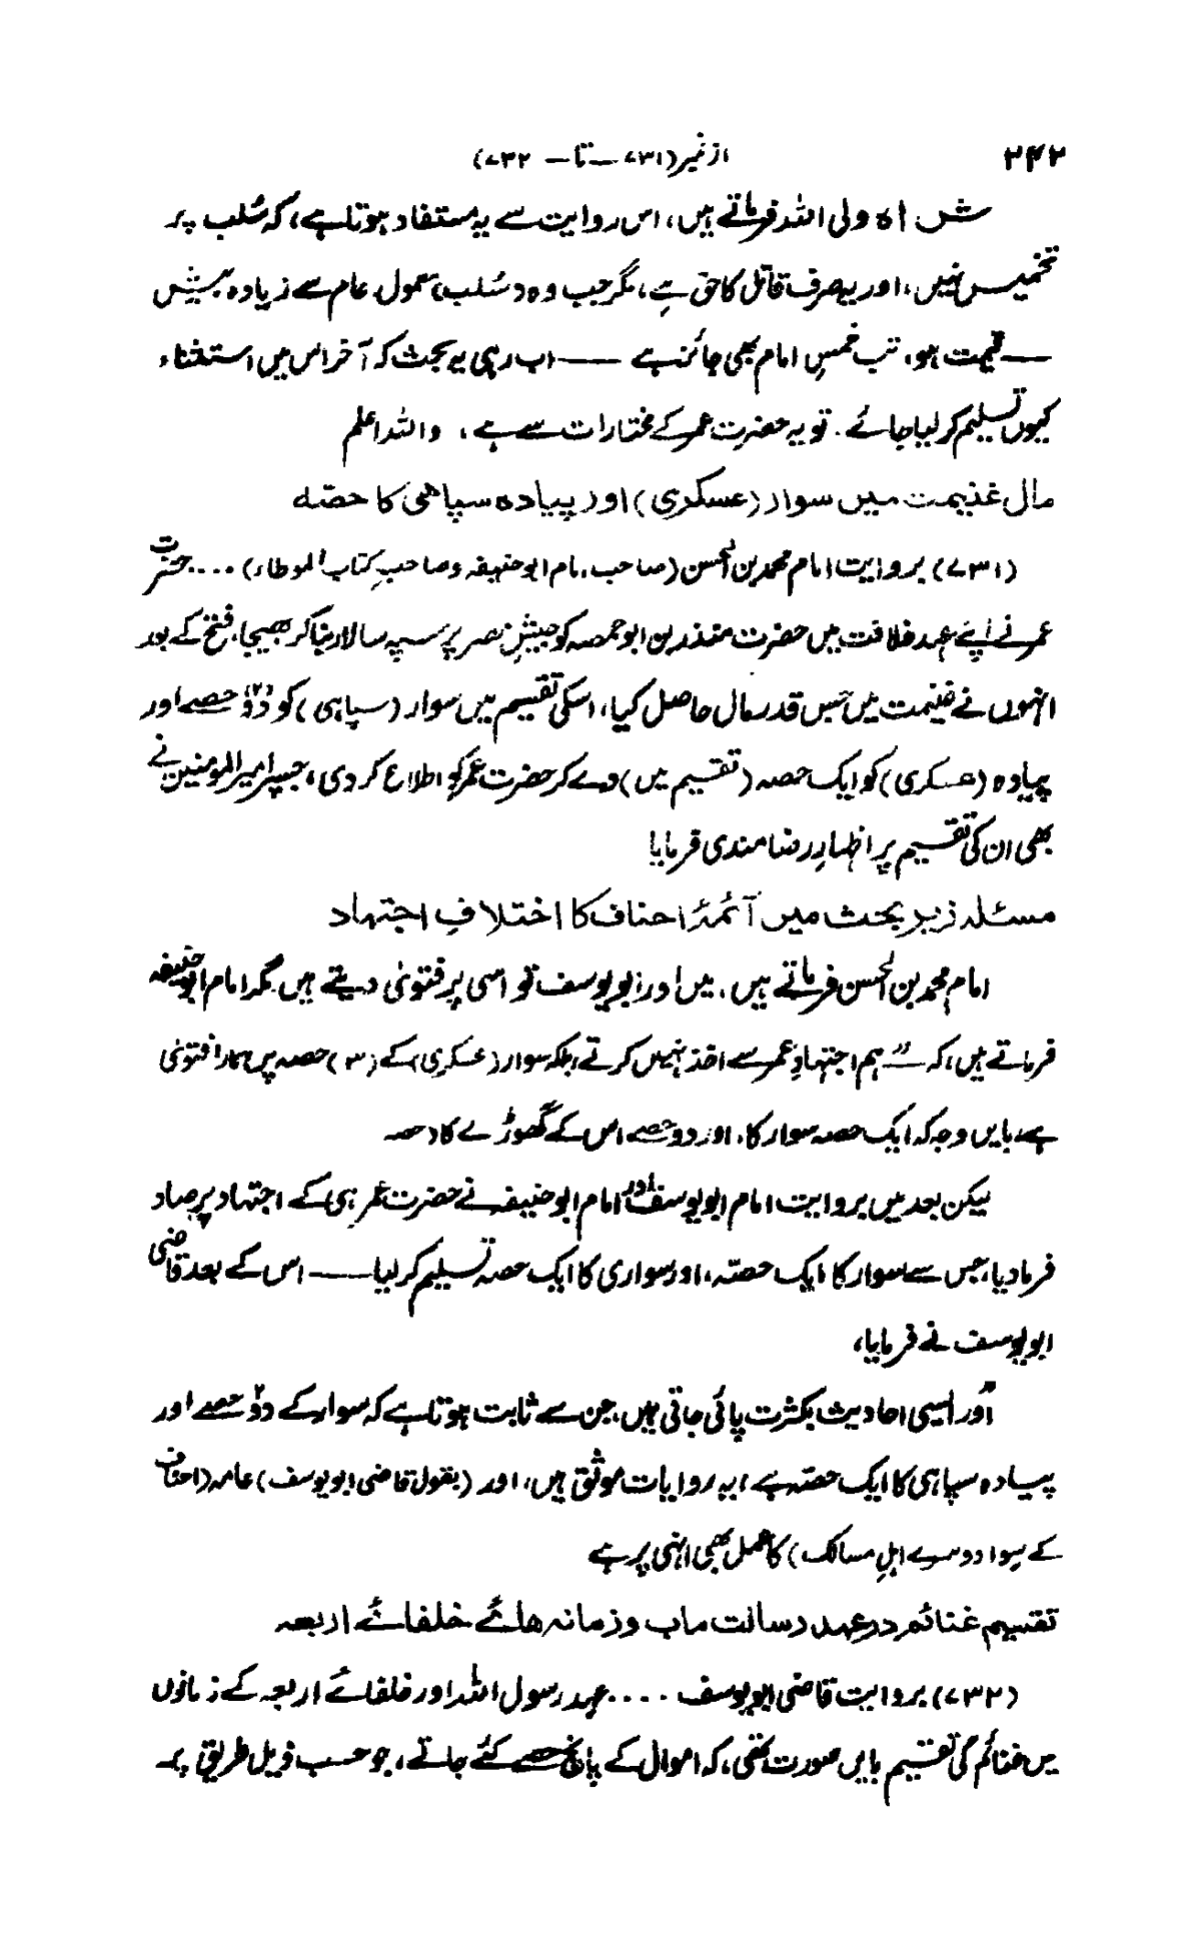 ۲۴۲
از نمبر (۷۳۱ – تا – ۷۳۲)
ش اہ ولی اللہ فرماتے ہیں، اس روایت سے یہ مستفاد ہوتا ہے، کہ سُلب پر
تخمیس نہیں، اور یہ صرف قاتل کا حق ہے، مگر جب وہ (سُلب) معمول عام سے زیادہ بیش
— قیمت ہو، تب خمسِ امام بھی جائز ہے —— اب رہی یہ بحث کہ آخر اس میں استغناء
کیوں تسلیم کر لیا جائے۔ تو یہ حضرت عمر کے مختارات سے ہے، واللہ اعلم
مال غنیمت میں سوار (عسکری) اور پیادہ سپاھی کا حصّہ
(۷۳۱) بروایت امام محمد بن الحسن (صاحب امام ابو حنیفہ و صاحبِ کتاب الموطاء) .... حضرت
عمر نے اپنے عہد خلافت میں حضرت منذر بن ابو حمصہ کو جیشِ مصر پر سپہ سالار بنا کر بھیجا، فتح کے بعد
انہوں نے غنیمت میں جس قدر مال حاصل کیا، اسکی تقسیم میں سوار (سپاہی) کو دو (۲) حصے اور
پیادہ (عسکری) کو ایک حصہ (تقسیم میں) دے کر حضرت عمر کو اطلاع کر دی، جسپر امیر المومنین نے
بھی ان کی تقسیم پر اظہارِ رضا مندی فرمایا
مسئلہ زیر بحث میں آئمۂ احناف کا اختلافِ اجتہاد
امام محمد بن الحسن فرماتے ہیں، میں اور ابو یوسف تو اسی پر فتویٰ دیتے ہیں مگر امام ابو حنیفہ
فرماتے ہیں، کہ — "ہم اجتہادِ عمر سے اخذ نہیں کرتے بلکہ سوار (عسکری) کے (۳) حصہ پر ہمارا فتویٰ
ہے، بایں وجہ کہ ایک حصہ سوار کا، اور دو حصے اس کے گھوڑے کا حصہ
لیکن بعد میں بروایت امام ابو یوسف اور امام ابو حنیفہ نے حضرت عمر ہی کے اجتہاد پر صاد
فرما دیا، جس سے سوار کا ایک حصّہ، اور سواری کا ایک حصہ تسلیم کر لیا —— اس کے بعد قاضی
ابو یوسف نے فرمایا،
"اور ایسی احادیث بکثرت پائی جاتی ہیں، جن سے ثابت ہوتا ہے کہ سوار کے دو۲ حصے اور
پیادہ سپاہی کا ایک حصّہ ہے، یہ روایات موثق ہیں، اور (بقول قاضی ابو یوسف) عامہ (احناف
کے سوا دوسرے اہلِ مسالک) کا عمل بھی انہی پر ہے
تقسیم غنائم در عہد رسالت ماب و زمانہ ھائے خلفائے اربعہ
(۷۳۲) بروایت قاضی ابو یوسف .... عہد رسول اللہ اور خلفائے اربعہ کے زمانوں
میں غنائم کی تقسیم بایں صورت تھی، کہ اموال کے پانچ حصے کئے جاتے، جو حسب ذیل طریق پر